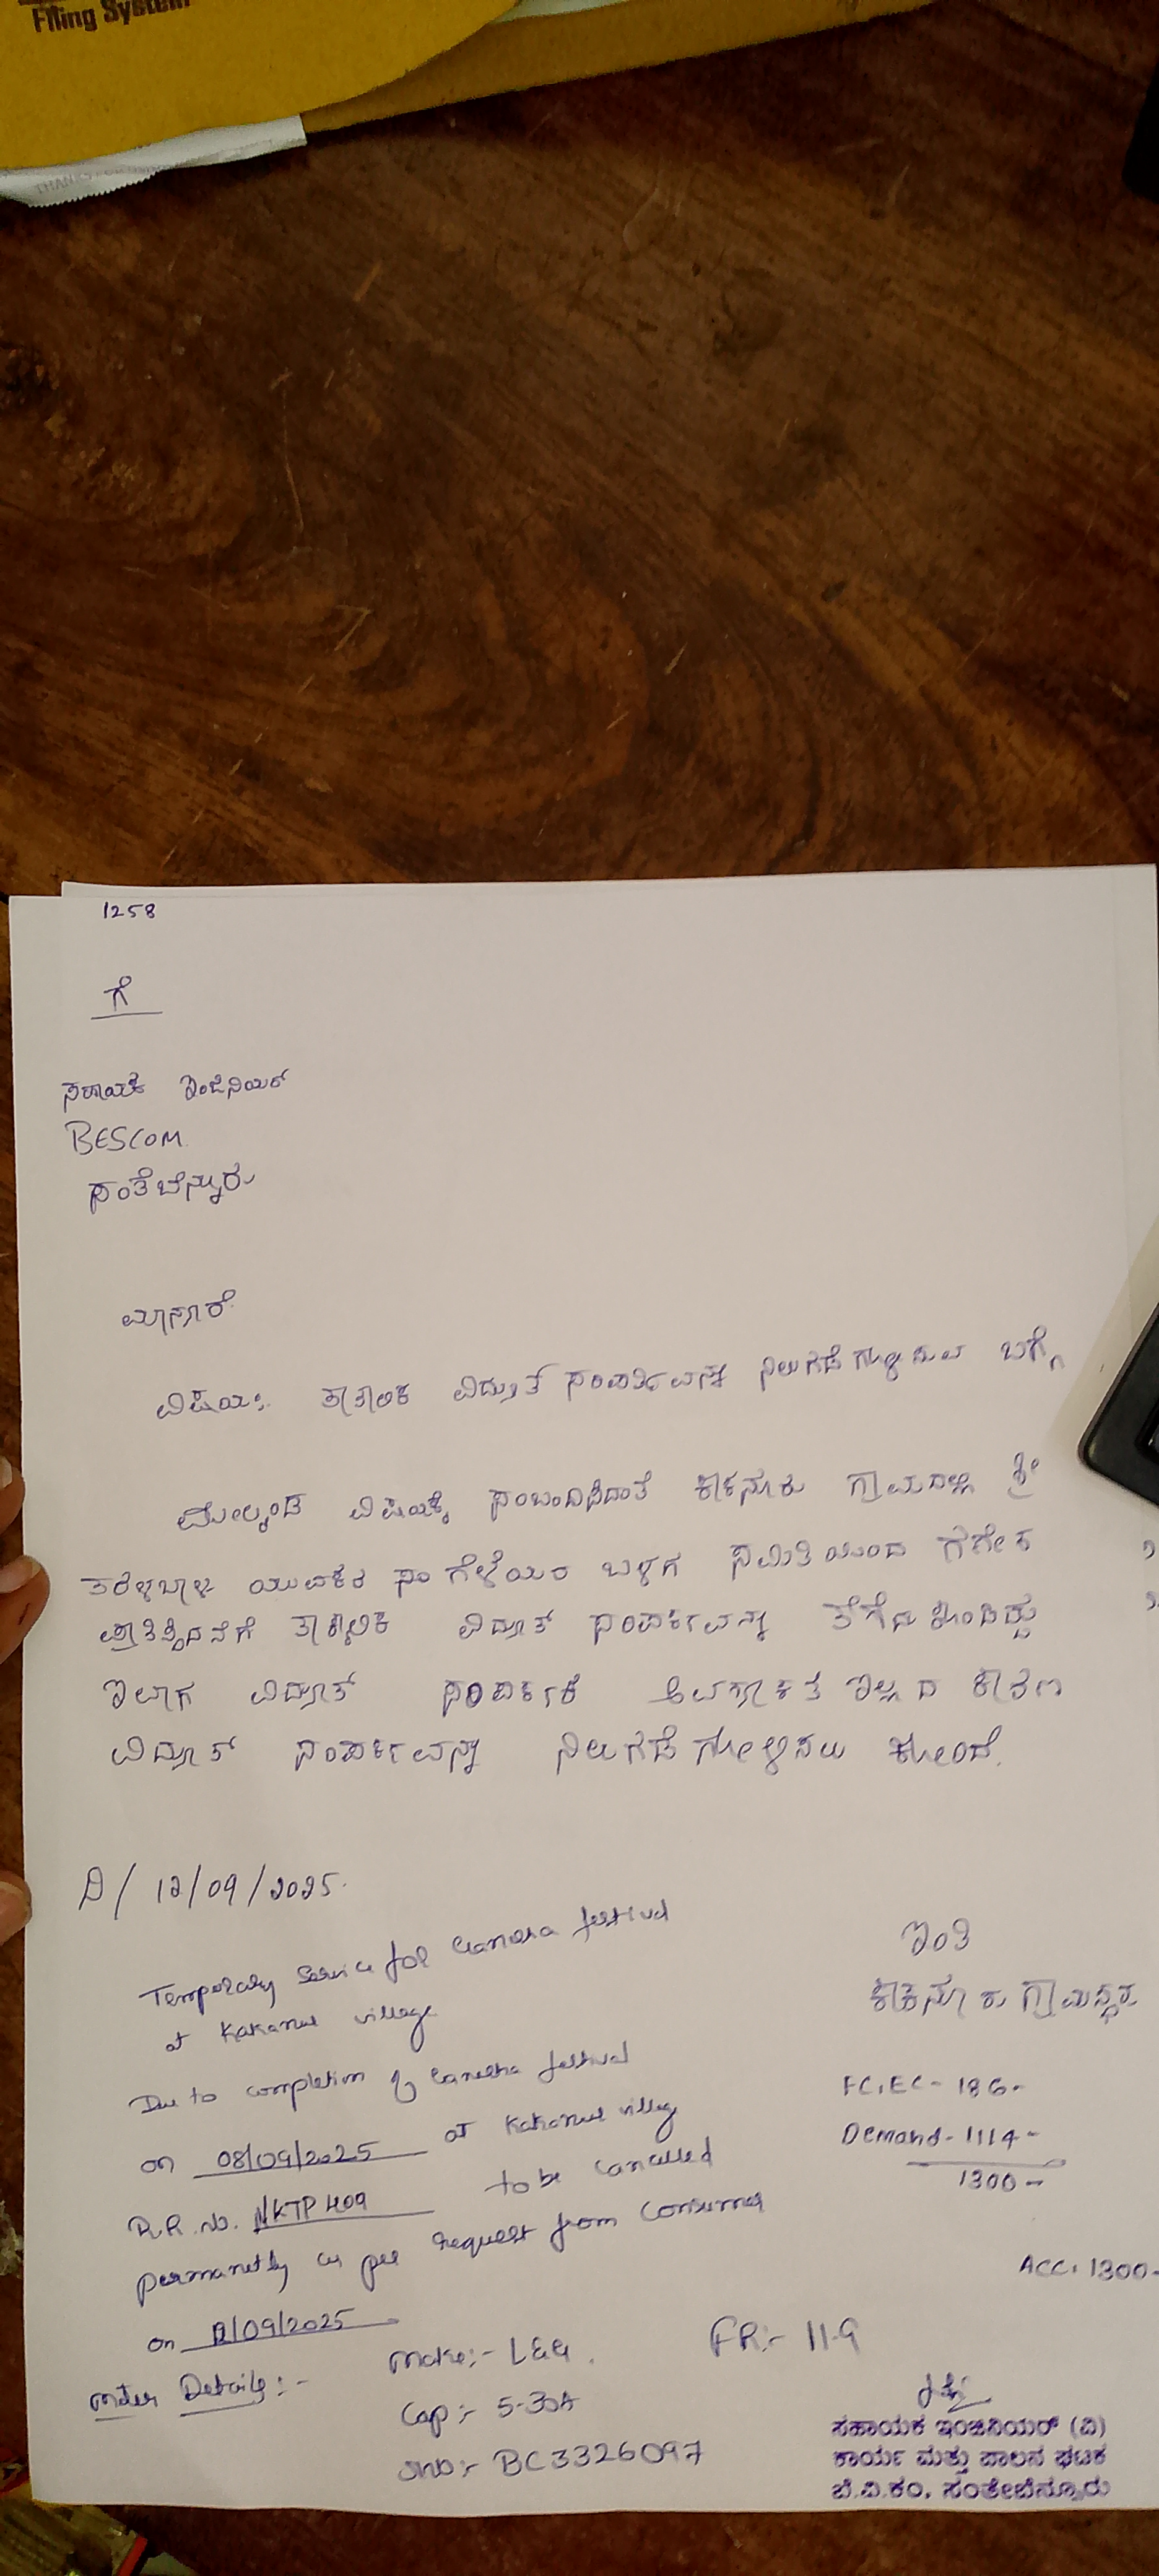 Filing System
THANKS
1258
ಗೆ
ಸಹಾಯಕ ಇಂಜಿನಿಯರ್
BESCOM
ಸಂತೆಬೆನ್ನೂರು
ಮಾನ್ಯರೆ
ವಿಷಯ:. ತಾತ್ಕಾಲಿಕ ವಿದ್ಯುತ್ ಸಂಪರ್ಕವನ್ನು ನಿಲುಗಡೆಗೊಳ್ಳಿಸುವ ಬಗ್ಗೆ
ಮೇಲ್ಕಂಡ ವಿಷಯಕ್ಕೆ ಸಂಬಂದಿಸಿದಂತೆ ಕಾಕನೂರು ಗ್ರಾಮದಲ್ಲಿ ಶ್ರೀ
ತರಳಬಾಳು ಯುವಕರ ಗೆಳೆಯರ ಬಳಗ ಸಮಿತಿಯಿಂದ ಗಣೇಶ
ತಾತ್ಕಾಲಿಕ ವಿದ್ಯುತ್ ಸಂಪರ್ಕವನ್ನು ತೆಗೆದುಕೊಂಡಿದ್ದು
ಇವಾಗ ವಿದ್ಯುತ್ ಸಂಪರ್ಕಕೆ ಅವಶ್ಯಕತೆ ಇಲ್ಲದ ಕಾರಣ
ವಿದ್ಯುತ್ ಸಂಪರ್ಕವನ್ನು ನಿಲುಗಡೆಗೊಳ್ಳಿಸಲು ಕೋರಿದೆ.
ದಿ/ 12/09/2025.
Temporary Service for Ganesha festival
at Kakanur village
ಇಂತಿ
ಕಾಕನೂರು ಗ್ರಾಮಸ್ಥರು
Due to completion of Ganesha festival
on 08/09/2025 at Kakanur village
R.R. No. NKTP409 to be cancelled
permanetly as per request from Consumer
on 12/09/2025
FC.EC - 186-
Demand - 1114-
1300-
ACC. 1300-
Meter Details:-
Make:- L&G.
Cap:- 5-30A
SNO:- BC3326097
FR:- 11.9
ಸಹಾಯಕ ಇಂಜಿನಿಯರ್ (ವಿ)
ಕಾರ್ಯ ಮತ್ತು ಪಾಲನ ಘಟಕ
ಬೆ.ವಿ.ಕಂ. ಸಂತೇಬೆನ್ನೂರು